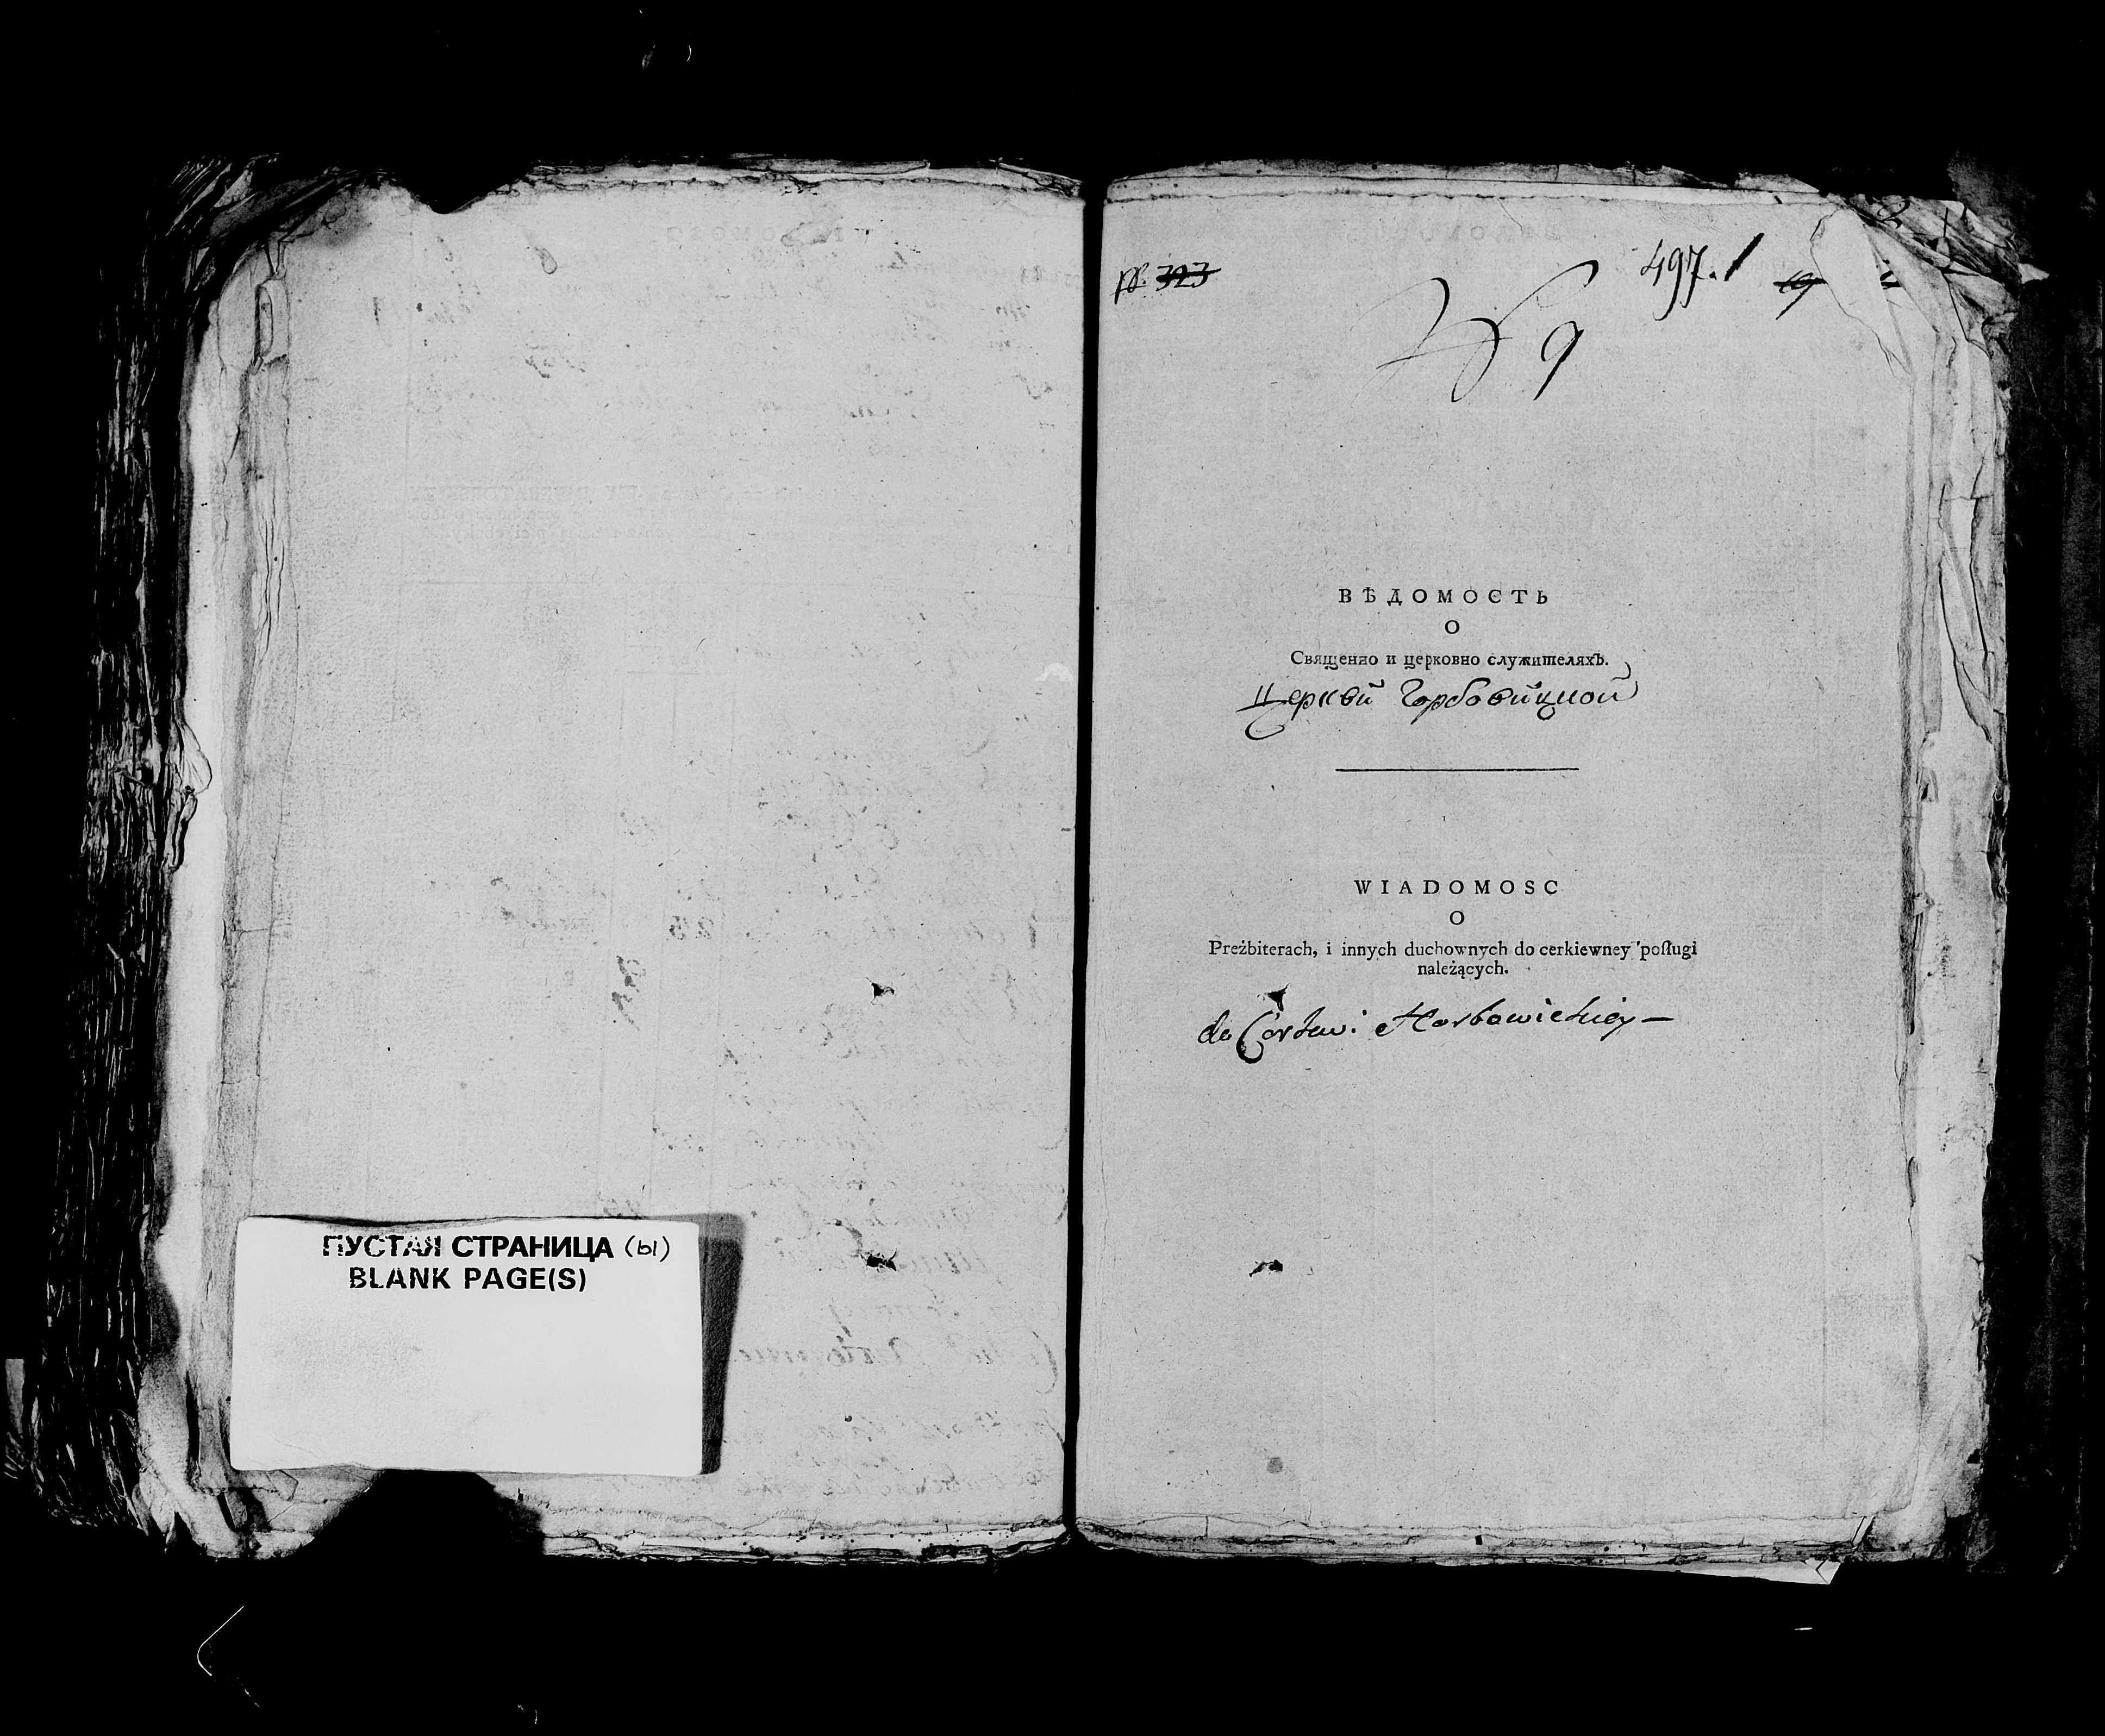 ПУСТАЯ СТРАНИЦА (ы)
BLANK PAGE(S)
497. 1
№ 9
ВѢДОМОСТЬ
О
Священно и церковно служителяхЪ.
Церкви Горбовицкой
WIADOMOSC
O
Preżbiterach, i innych duchownych do cerkiewney posługi
należących.
do Cerkwi Horbowickiey —